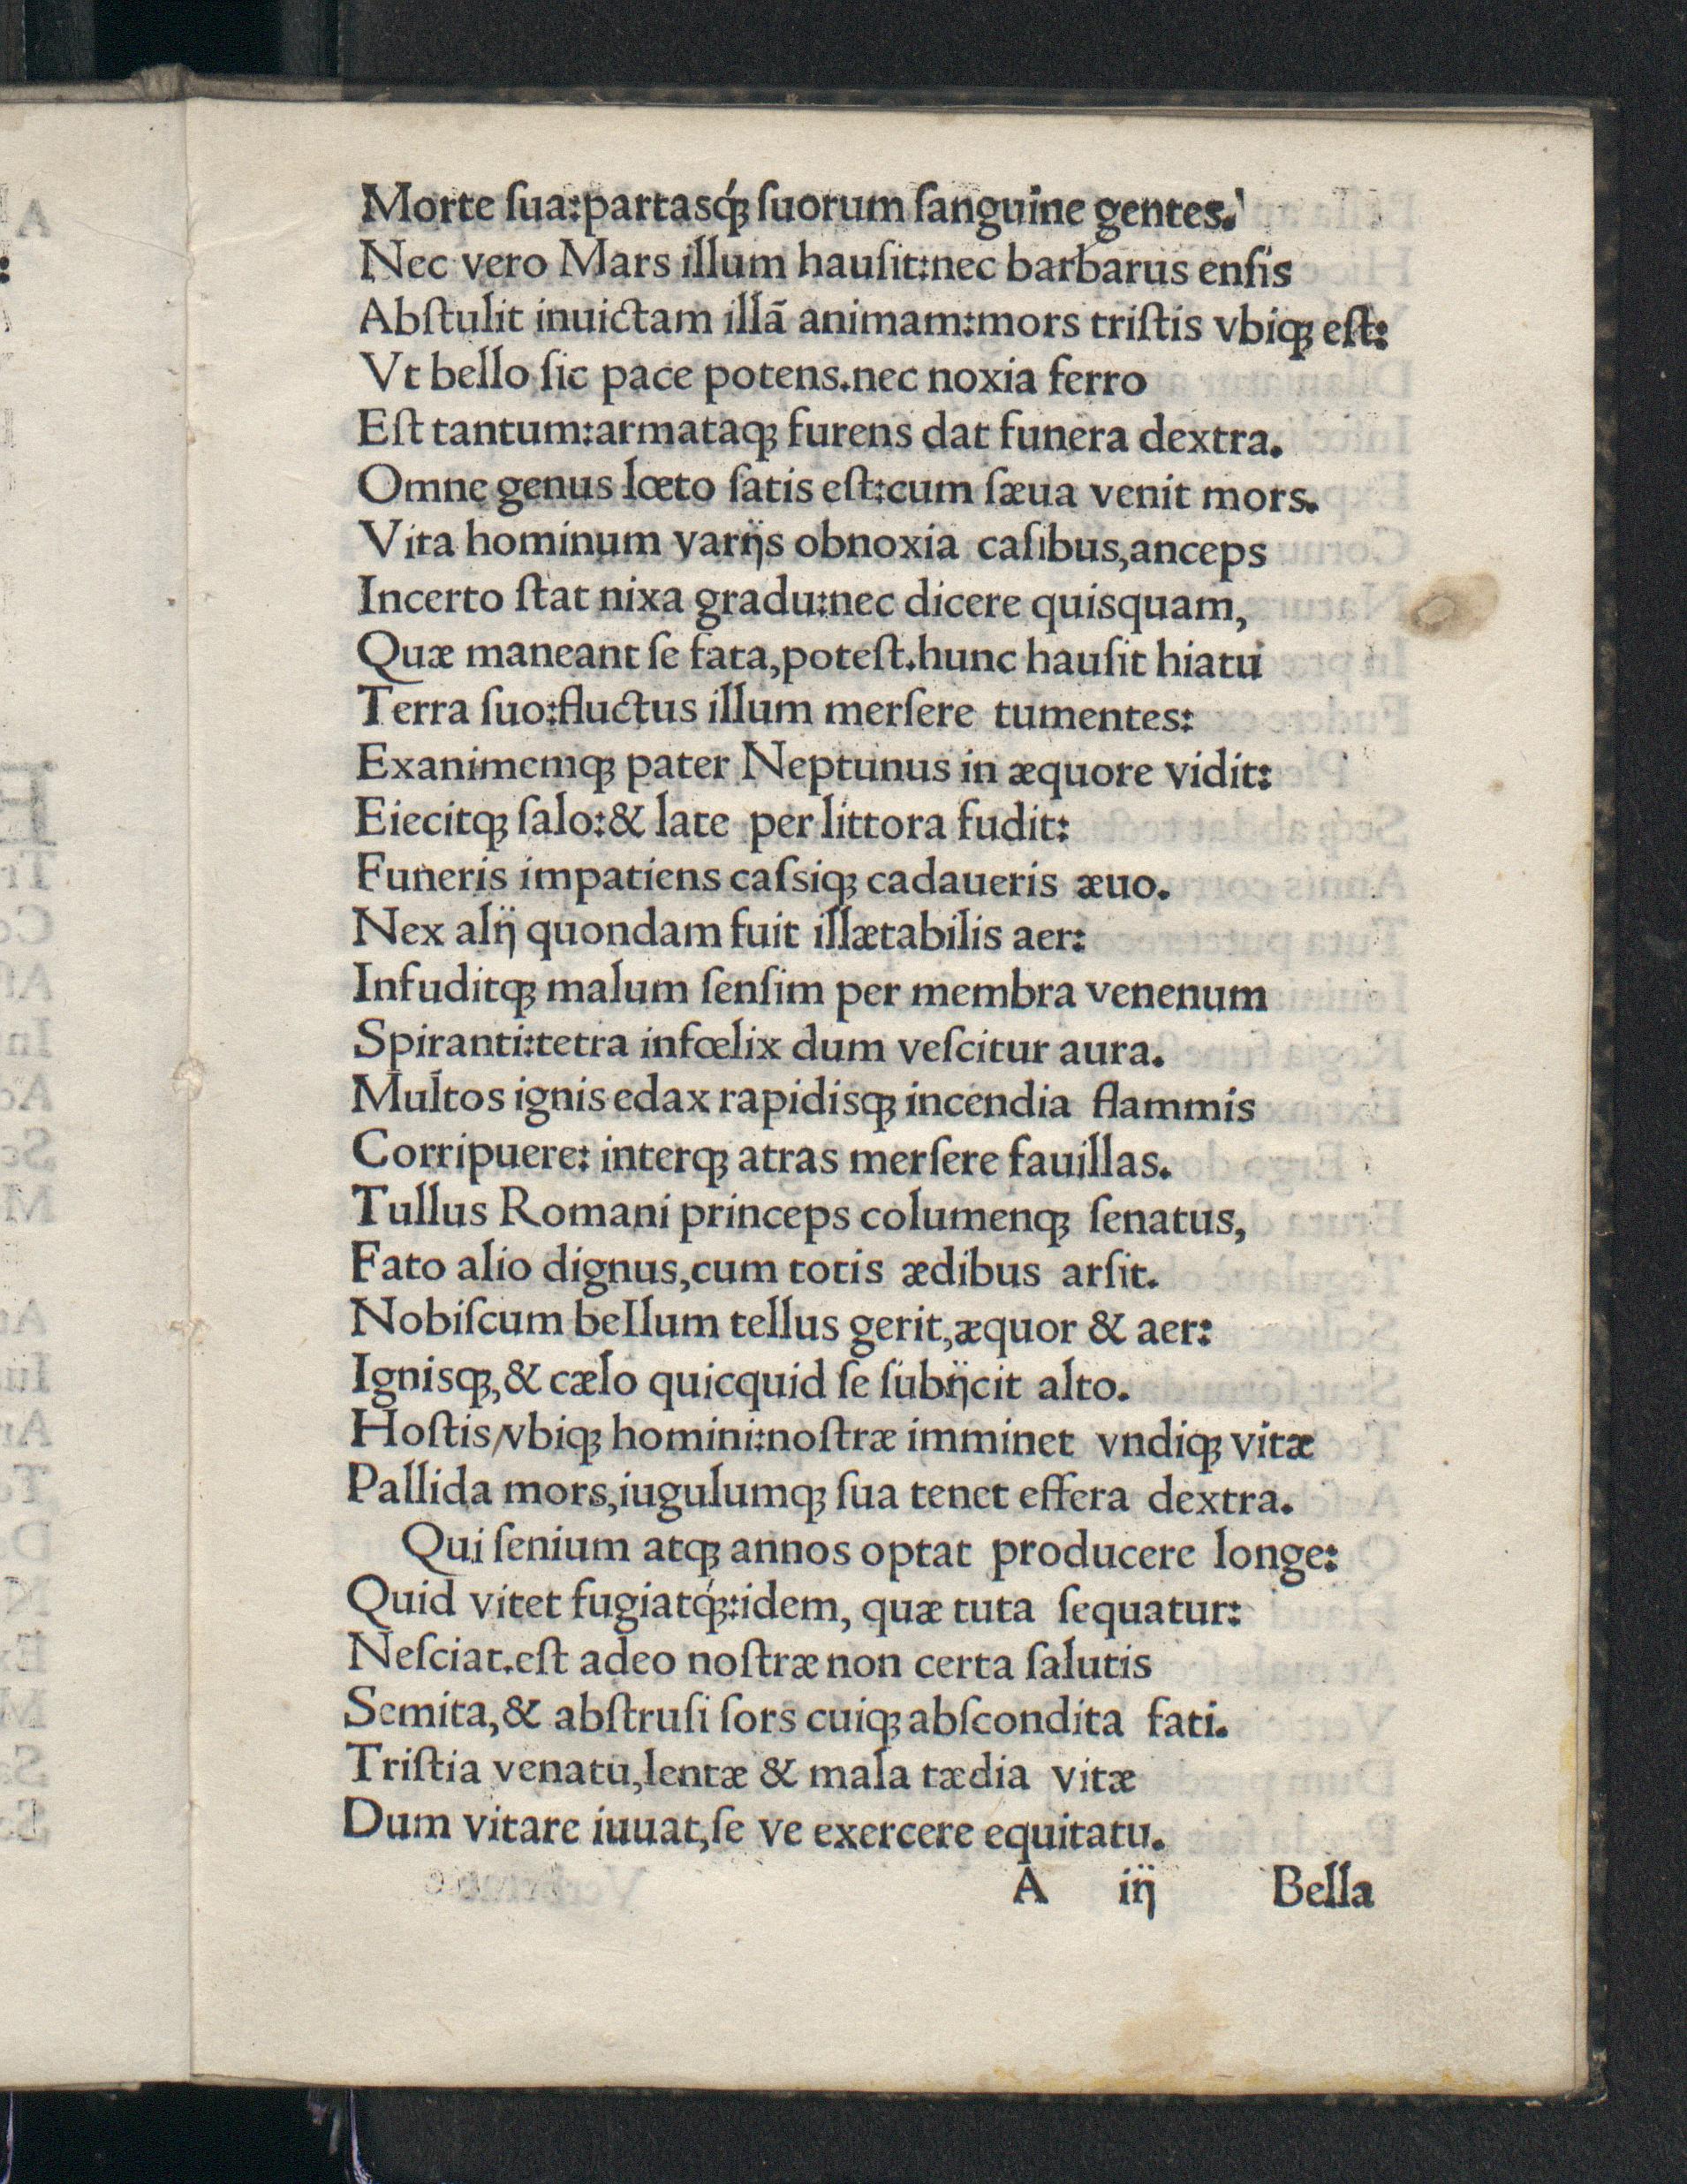 Morte ſua:partasq́ꝫ ſuorum ſanguine gentes.
Nec vero Mars illum hauſit:nec barbarus enſis
Abſtulit inuictam illã animam:mors triſtis vbiqꝫ eſt:
Vt bello ſic pace potens.nec noxia ferro
Eſt tantum:armataqꝫ furens dat funera dextra.
Omne genus lœto ſatis eſt:cum ſæua venit mors.
Vita hominum varijs obnoxia caſibus,anceps
Incerto ſtat nixa gradu:nec dicere quisquam,
Quæ maneant ſe fata,poteſt.hunc hauſit hiatu
Terra ſuo:fluctus illum merſere tumentes:
Exanimemqꝫ pater Neptunus in æquore vidit:
Eiecitqꝫ ſalo:& late per littora fudit:
Funeris impatiens caſsiqꝫ cadaueris æuo.
Nex alij quondam fuit illætabilis aer:
Infuditqꝫ malum ſenſim per membra venenum
Spiranti:tetra infœlix dum veſcitur aura.
Multos ignis edax rapidisqꝫ incendia flammis
Corripuere: interqꝫ atras merſere fauillas.
Tullus Romani princeps columenqꝫ ſenatus,
Fato alio dignus,cum totis ædibus arſit.
Nobiſcum beIlum tellus gerit,æquor & aer:
Ignisqꝫ,& cælo quicquid ſe ſubijcit alto.
Hoſtis/vbiqꝫ homini:noſtræ imminet vndiqꝫ vitæ
Pallida mors,iugulumqꝫ ſua tenet effera dextra.
Qui ſenium atqꝫ annos optat producere longe:
Quid vitet fugiatq́ꝫ:idem, quæ tuta ſequatur:
Neſciat.eſt adeo noſtræ non certa ſalutis
Semita,& abſtruſi ſors cuiqꝫ abſcondita fati.
Triſtia venatu,lentæ & mala tædia vitæ
Dum vitare iuuat,ſe ve exercere equitatu.
A iij Bella